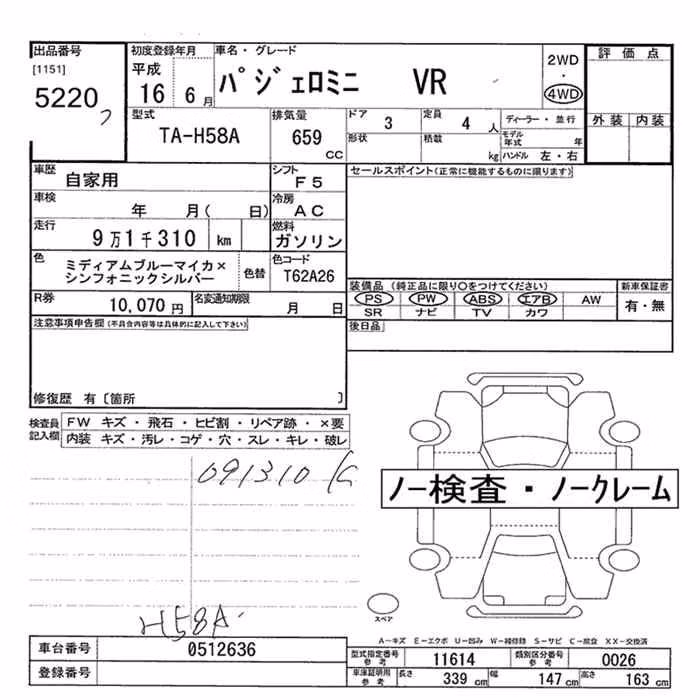 出品番号
[1151]
5220
初度登録年月
平成
16 6月
車名・グレード
パジェロミニ VR
2WD
・
4WD
評価点
外装 内装
型式
TA-H58A
排気量
659
CC
ドア
3
定員
4 人
形状
積載
kg
ディーラー・並行
モデル
年式 年
ハンドル 左・右
車歴
自家用
シフト
F5
セールスポイント(正常に機能するものに限ります)
車検
年 月( 日)
冷房
AC
走行
9万1千310 km
燃料
ガソリン
色
ミディアムブルーマイカ×
シンフォニックシルバー
色替
色コード
T62A26
装備品 (純正品に限り〇をつけてください)
PS PW ABS エアB AW
SR ナビ TV カワ
新車保証書
有・無
R券
10,070 円
名変通知期限
月 日
後日品
注意事項申告欄 (不具合内容等は具体的に記入して下さい)
修復歴 有〔箇所 〕
検査員
記入欄
FW キズ・飛石・ヒビ割・リペア跡・×要
内装 キズ・汚レ・コゲ・穴・スレ・キレ・破レ
091310
ノー検査・ノークレーム
スペア
H58A
A-キズ E-エクボ U-凹み W-補修跡 S-サビ C-腐食 XX-交換済
車台番号
0512636
登録番号
型式指定番号
参考
11614
類別区分番号
参考
0026
車庫証明用
参考
長さ
339 cm
幅
147 cm
高さ
163 cm